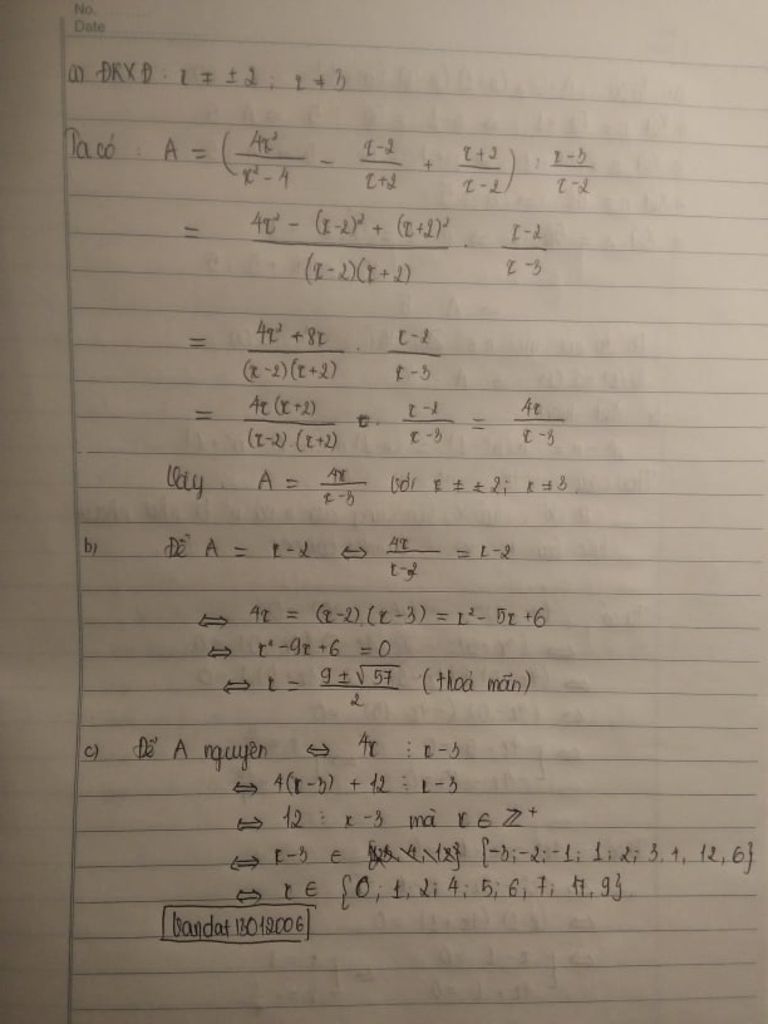 No.
Date
a) ĐKXĐ: x ≠ ±2; x ≠ 3
Ta có: A = (4x²/(x²-4) - (x-2)/(x+2) + (x+2)/(x-2)) : (x-3)/(x-2)
= (4x² - (x-2)² + (x+2)²)/((x-2)(x+2)) . (x-2)/(x-3)
= (4x² + 8x)/((x-2)(x+2)) . (x-2)/(x-3)
= (4x(x+2))/((x-2).(x+2)) . (x-2)/(x-3) = 4x/(x-3)
Vậy A = 4x/(x-3) với x ≠ ±2; x ≠ 3.
b) Để A = x-2 ⇔ 4x/(x-2) = x-2
⇔ 4x = (x-2).(x-3) = x² - 5x + 6
⇔ x² - 9x + 6 = 0
⇔ x = (9 ± √57)/2 (thoả mãn)
c) Để A nguyên ⇔ 4x ⋮ x-3
⇔ 4(x-3) + 12 ⋮ x-3
⇔ 12 ⋮ x-3 mà x ∈ Z⁺
⇔ x-3 ∈ {-3;-2;-1; 1; 2; 3, 4, 12, 6}
⇔ x ∈ {0; 1, 2; 4; 5; 6, 7; 17, 9}
Vandat13012006